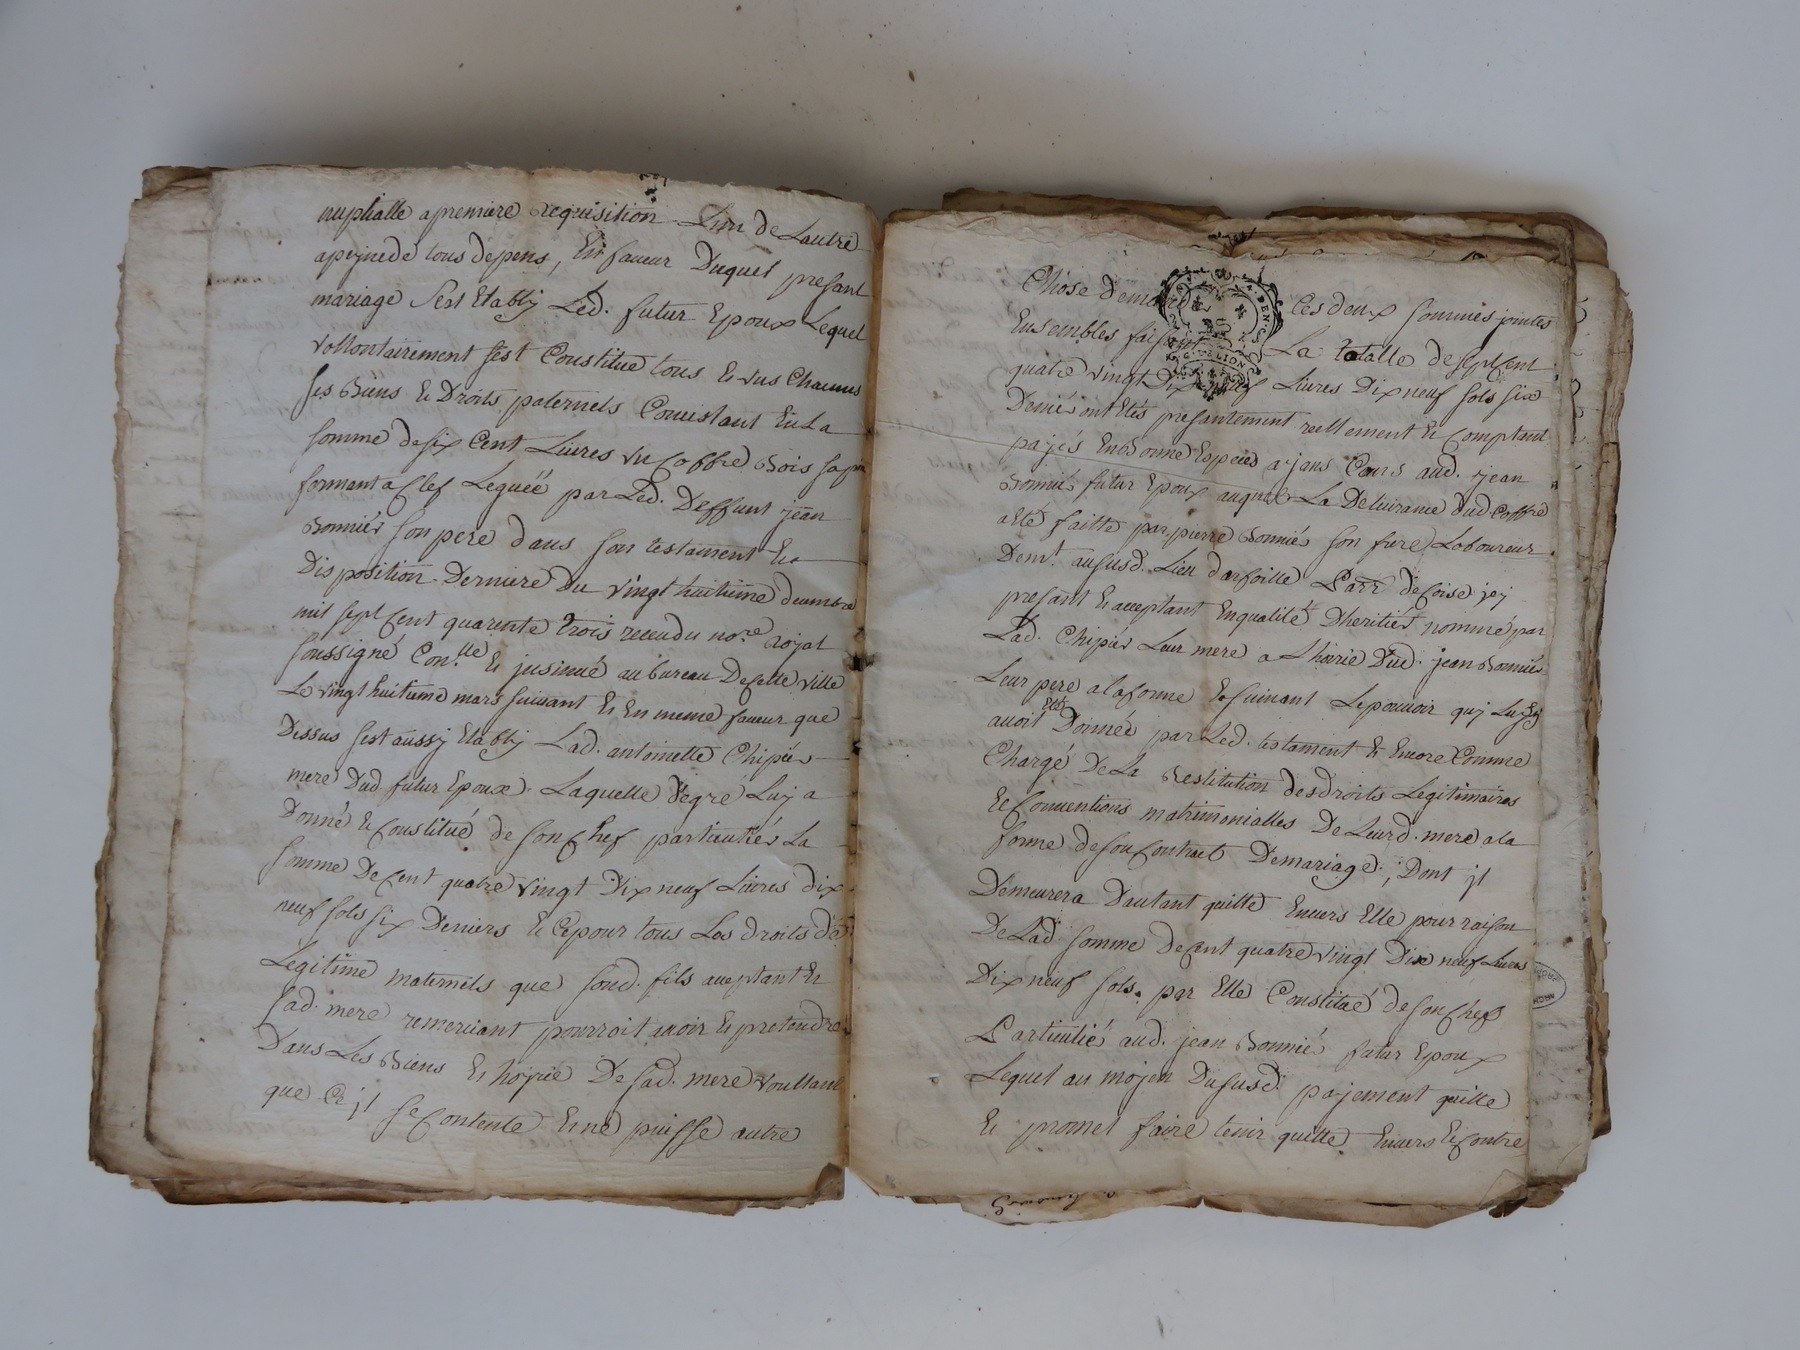 nuptialle apremiere requisition Lun de Lautre
apeynede tous depens, En faveur Duquel presant
mariage sest Etably Led. futur Epoux Lequel
vollontairement sest Constitué tous Et vus Chacuns
ses Biens Et Droits paternels Concistant En La
somme desix Cent Livres vn Coffre Bois sapin
formant a Clef Leguéé par Led. Deffunt jean
Bonniér son pere dans son testament Et
Disposition Derniere Du vingt huitieme decembre
mil sept Cent quarente trois receu du no.re royal
soussigné Con.lle Et jnsinué au bureau De Cette ville
Le vingt huitieme mars suivant Et En meme faveur que
Dessus sest aussy Etably Lad. antoinette Chipiér
mere Dud. futur Epoux. Laquelle Degre Luy a
Donné Et Constitué de son Chef particuliér La
somme De Cent quatre vingt Dix neuf Livres dix
neuf sols six Deniers Et Ce pour tous Les droits de
Legitime maternels que sond. fils acceptant Et
sad. mere remerciant pourroit avoir Et pretendre
Dans Les Biens Et hoyrie De sad. mere voullant
que Ce jl se Contente Et ne puisse autre
Chose Demander Ces deux sommes jointes
Ensembles faisant La totalle de sept Cent
quatre vingt Dix neuf Livres Dix neuf sols six
Deniés ont Etés presantement reellement Et Comptant
payés En Bonne Especes ayans Cours aud. jean
Bonniér futur Epoux auquel La Delivrance dud. Coffre
a Eté faitte par pierre Bonniér son frere Laboureur
Dem.t aususd. Lieu darfoille Parr. de Coise jcy
presant Et acceptant En qualité Dheritiér nommé par
Lad. Chipiér Leur mere a Lhoirie Dud. jean Bonniér
Leur pere a la forme Et suivant Le pouvoir quj Luy En
avoit Eté Donnée par Led. testament Et Encore Comme
Chargé De La Restitution des droits Legitimaires
Et Conventions matrimonialles De Leurd. mere a la
forme de son Contract Demariage; Dont jl
Demeurera Dautant quitte Envers Elle pour raison
De Lad. somme de Cent quatre vingt Dix neuf Livres
Dix neuf sols. par Elle Constitué de son Chef
Particulié aud. jean Bonniér futur Epoux
Lequel au moyen Dususd. payement quitte
Et promet faire tenir quitte Envers Et Contre